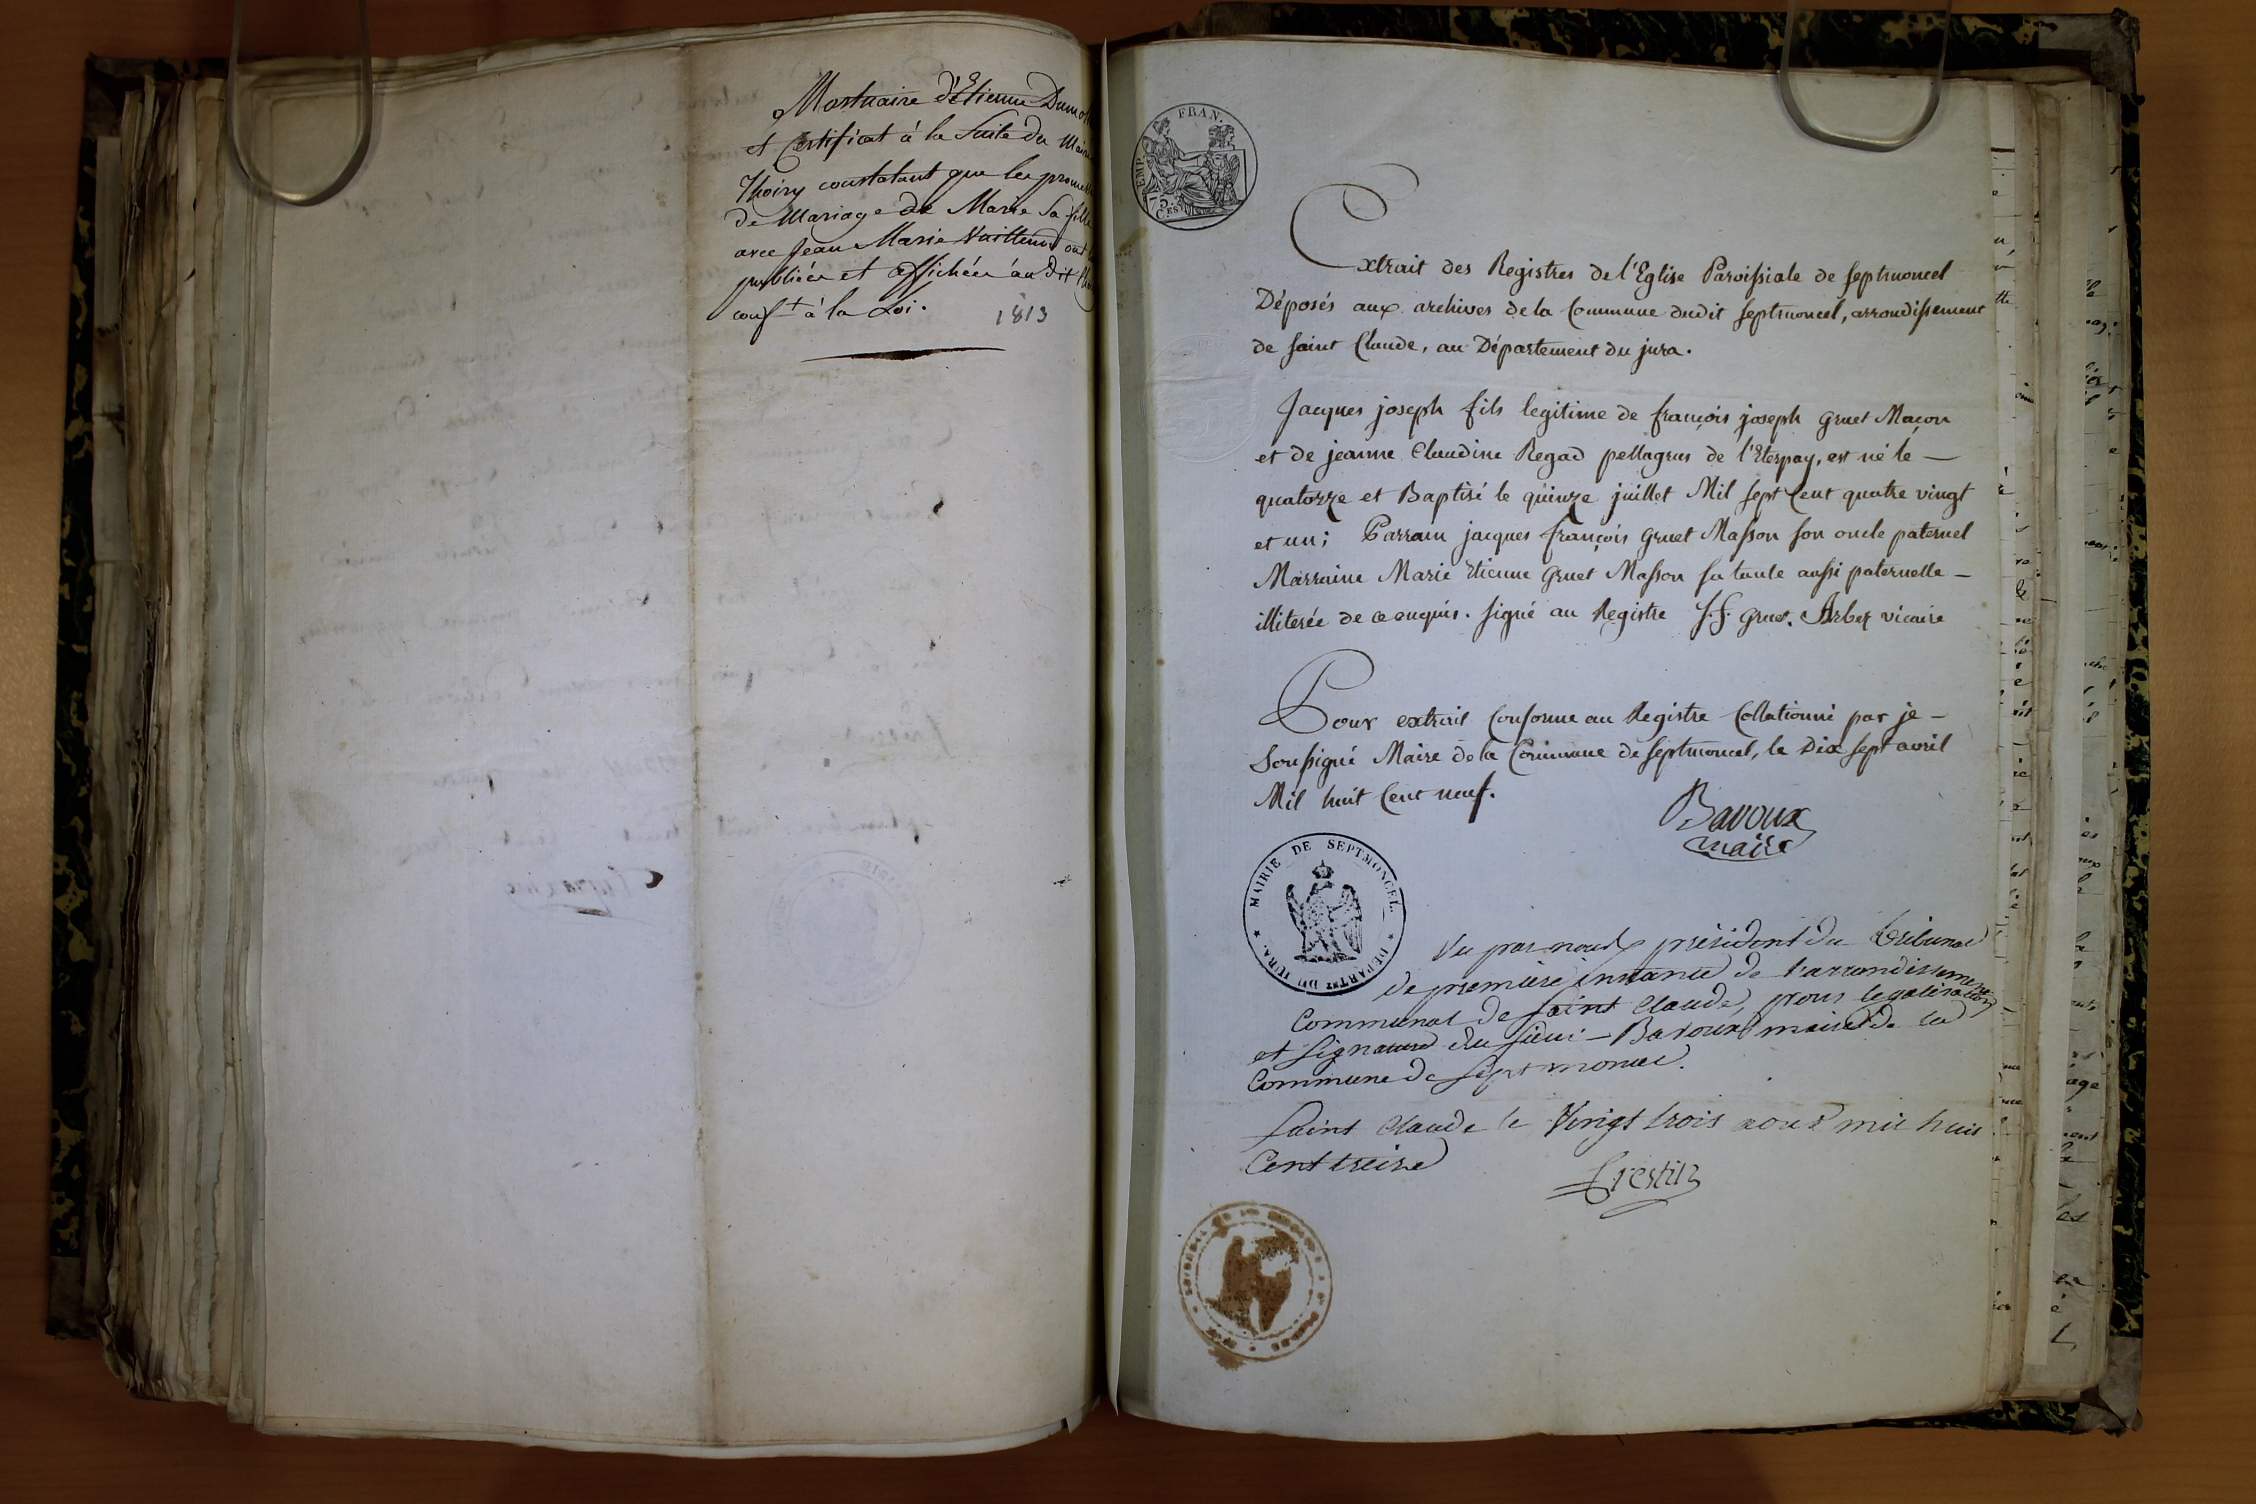 Mortuaire d'Etienne
et Certificat à la Suite du
Thoiry constatant que les
de Mariage de Marie Sa fille
avec Jean Marie Vuilleme
publiées et affichées au dit
conf.t à la Loi.
1813
EMP. FRAN.
75. CES
Extrait des Registres de l'Eglise Paroissiale de septmoncel
Déposés aux archives de la Commune dudit septmoncel, arrondissement
de saint Claude, au Département du jura.
Jacques joseph fils legitime de françois joseph Gruet Maçon
et de jeanne Claudine Regad pellagrus de l'Etespay, est né le –
quatorze et Baptisé le quinze juillet Mil sept Cent quatre vingt
et un; Parrain jacques françois Gruet Masson son oncle paternel
Marraine Marie Etienne Gruet Masson sa tante aussi paternelle –
illiterée de ce enquis. signé au Registre J.F. Gruet. Arbez vicaire
Pour extrait Conforme au Registre Collationné par je –
Soussigné Maire de la Commune de septmoncel, le Dix sept avril
Mil huit Cent neuf.
Bavoux
maire
MAIRIE DE SEPTMONCEL. ★ DÉPART.NT DU JURA. ★
Vu par nous président du tribunal
de première instance de l'arrondissement
Communal de saint Claude, pour legalisation
et signature du sieur – Bavoux maire de la
Commune de septmoncel.
saint Claude le Vingt trois aout mil huit
Cent treize
Crestin